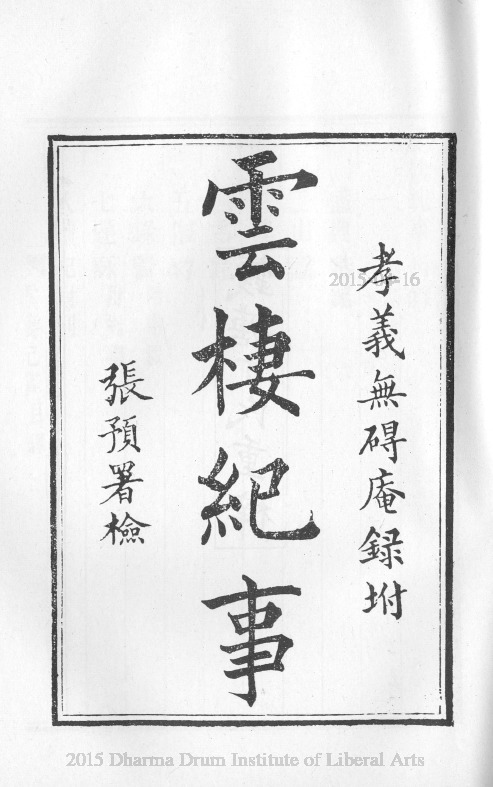 孝義無碍庵録坿
雲棲紀事
張預署檢
2015 Dharma Drum Institute of Liberal Arts